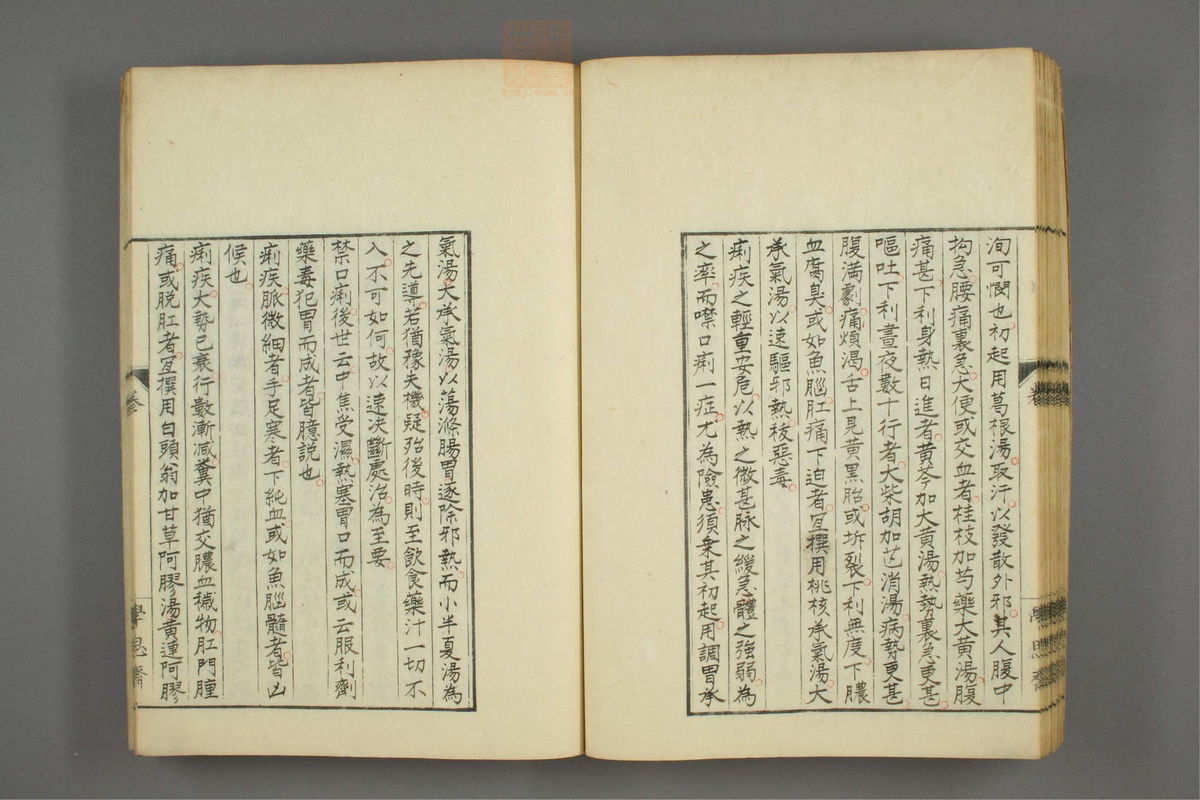 洵可憫也初起用葛根湯取汗以發散外邪其人腹中
拘急腰痛裏急大便或交血者桂枝加芍藥大黃湯腹
痛甚下利身熱日進者黃芩加大黃湯熱勢裏急更甚
嘔吐下利晝夜數十行者大柴胡加芒消湯病勢更甚
腹滿劇痛煩渴舌上見黃黑胎或坼裂下利無度下膿
血腐臭或如魚腦肛痛下迫者宜撰用桃核承氣湯大
承氣湯以速驅邪熱拔惡毒
痢疾之輕重安危以熱之微甚脉之緩急體之強弱為
之率而噤口痢一症尤為險患須乘其初起用調胃承
氣湯大承氣湯以蕩滌腸胃逐除邪熱而小半夏湯為
之先導若猶豫失機疑殆後時則至飲食藥汁一切不
入不可如何故以速決斷處治為至要
禁口痢後世云中焦受濕熱塞胃口而成或云服利劑
藥毒犯胃而成者皆臆說也
痢疾脈微細者手足寒者下純血或如魚腦髓者皆凶
候也
痢疾大勢已衰行數漸減糞中猶交膿血穢物肛門腫
痛或脫肛者宜撰用白頭翁加甘草阿膠湯黃連阿膠
卷
學思齋
zysj.com.cn